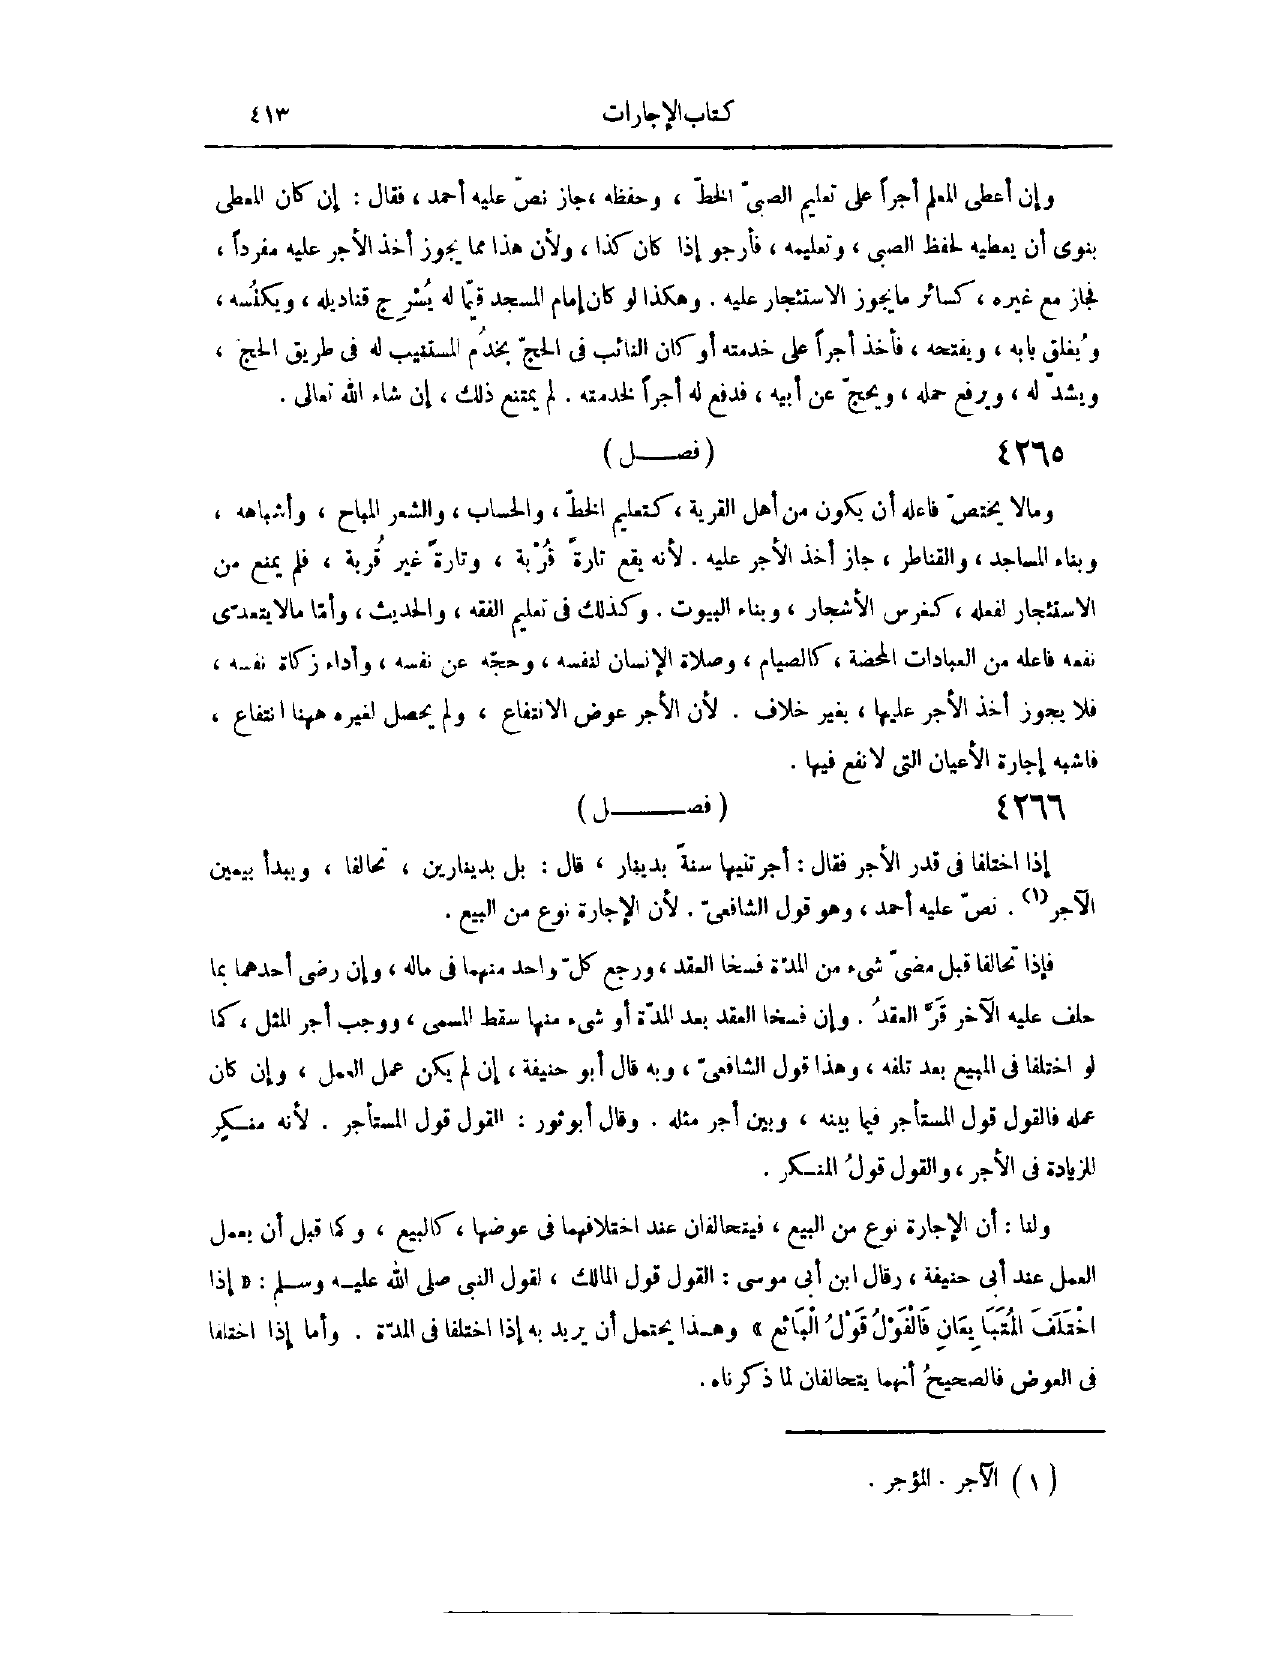 كتاب الإجارات ٤١٣
وإن أعطى المعلم أجراً على تعليم الصبىّ الخطّ ، وحفظه ،جاز نصّ عليه أحمد ، فقال : إن كان المعطى
بنوى أن يعطيه لحفظ الصبى ، وتعليمه ، فأرجو إذا كان كذا ، ولأن هذا مما يجوز أخذ الأجر عليه مفرداً ،
فجاز مع غيره ، كسائر مايجوز الاستئجار عليه . وهكذا لو كان إمام المسجد قيّما له يُسْرِج قناديله ، ويكنُسه ،
ويُغلق بابه ، ويفتحه ، فأخذ أجراً على خدمته أو كان النائب فى الحجّ يخدُم المستنيب له فى طريق الحج ،
ويشدّ له ، ويرفع حمله ، ويحجّ عن أبيه ، فدفع له أجراً لخدمته . لم يمتنع ذلك ، إن شاء الله تعالى .
٤٢٦٥ ( فصـــل )
ومالا يختصّ فاعله أن يكون من أهل القربة ، كتعليم الخطّ ، والحساب ، والشعر المباح ، وأشباهه ،
وبناء المساجد ، والقناطر ، جاز أخذ الأجر عليه . لأنه يقع تارةً قُرْبة ، وتارةً غير قُربة ، فلم يمنع من
الاستئجار لفعله ، كغرس الأشجار ، وبناء البيوت . وكذلك فى تعليم الفقه ، والحديث ، وأمّا مالا يتعدّى
نفعه فاعله من العبادات المحضة ، كالصيام ، وصلاة الإنسان لنفسه ، وحجّه عن نفسه ، وأداء زكاة نفسه ،
فلا يجوز أخذ الأجر عليها ، بغير خلاف . لأن الأجر عوض الانتفاع ، ولم يحصل لغيره ههنا انتفاع ،
فاشبه إجارة الأعيان التى لانفع فيها .
٤٢٦٦ ( فصـــــل )
إذا اختلفا فى قدر الأجر فقال : أجرتنيها سنةً بدينار ، قال : بل بدينارين ، تحالفا ، ويبدأ بيمين
الآجر(١) . نصّ عليه أحمد ، وهو قول الشافعىّ . لأن الإجارة نوع من البيع .
فإذا تحالفا قبل مضىّ شىء من المدّة فسخا العقد ، ورجع كلّ واحد منهما فى ماله ، وإن رضى أحدهما بما
حلف عليه الآخر قَرَّ العقدُ . وإن فسخا العقد بعد المدّة أو شىء منها سقط المسمى ، ووجب أجر المثل ، كما
لو اختلفا فى المبيع بعد تلفه ، وهذا قول الشافعىّ ، وبه قال أبو حنيفة ، إن لم يكن عمل العمل ، وإن كان
عمله فالقول قول المستأجر فيما بينه ، وبين أجر مثله . وقال أبوثور : القول قول المستأجر . لأنه منـكر
للزيادة فى الأجر ، والقول قولُ المنـكر .
ولنا : أن الإجارة نوع من البيع ، فيتحالفان عند اختلافهما فى عوضها ، كالبيع ، وكما قبل أن يعمل
العمل عند أبى حنيفة ، وقال ابن أبى موسى : القول قول المالك ، لقول النبى صلى الله عليـه وسـلم : « إذا
اخْتَلَفَ الْمُتَبَايِعَانِ فَالْقَوْلُ قَوْلُ الْبَائع » وهـذا يحتمل أن يريد به إذا اختلفا فى المدّة . وأما إذا اختلفا
فى العوض فالصحيحُ أنهما يتحالفان لما ذكرناه .
( ١ ) الآجر . المؤجر .